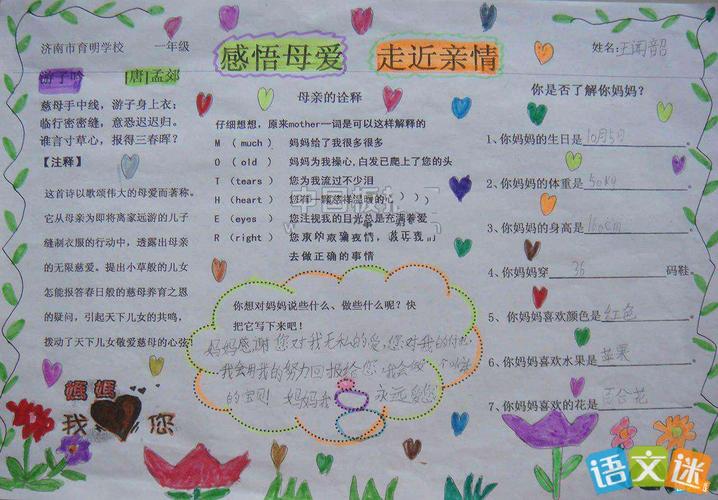 济南市育明学校 一年级
感悟母爱 走近亲情
姓名:王闻韶
游子吟 [唐]孟郊
慈母手中线，游子身上衣；
临行密密缝，意恐迟迟归。
谁言寸草心，报得三春晖？
【注释】
这首诗以歌颂伟大的母爱而著称。
它从母亲为即将离家远游的儿子
缝制衣服的行动中，透露出母亲
的无限慈爱。提出小草般的儿女
怎能报答春日般的慈母养育之恩
的疑问，引起天下儿女的共鸣，
拨动了天下儿女敬爱慈母的心弦！
妈妈
我 您
母亲的诠释
仔细想想，原来mother一词是可以这样解释的
M (much) 妈妈给了我很多很多
O (old) 妈妈为我操心,白发已爬上了您的头
T (tears) 您为我流过不少泪
H (heart) 您有一颗慈祥温暖的心
E (eyes) 您注视我的目光总是充满着爱
R (right) 您
去做正确的事情
你想对妈妈说些什么、做些什么呢？快
把它写下来吧！
妈妈感谢您对我无私的爱,您对我的付出
我会用我的努力回报给您,我会做一个
的宝贝! 妈妈我 永远爱您
你是否了解你妈妈？
1、你妈妈的生日是10月5日
2、你妈妈的体重是50kg
3、你妈妈的身高是160cm
4、你妈妈穿 36 码鞋。
5、你妈妈喜欢颜色是红色
6、你妈妈喜欢水果是苹果
7、你妈妈喜欢的花是百合花
语文迷